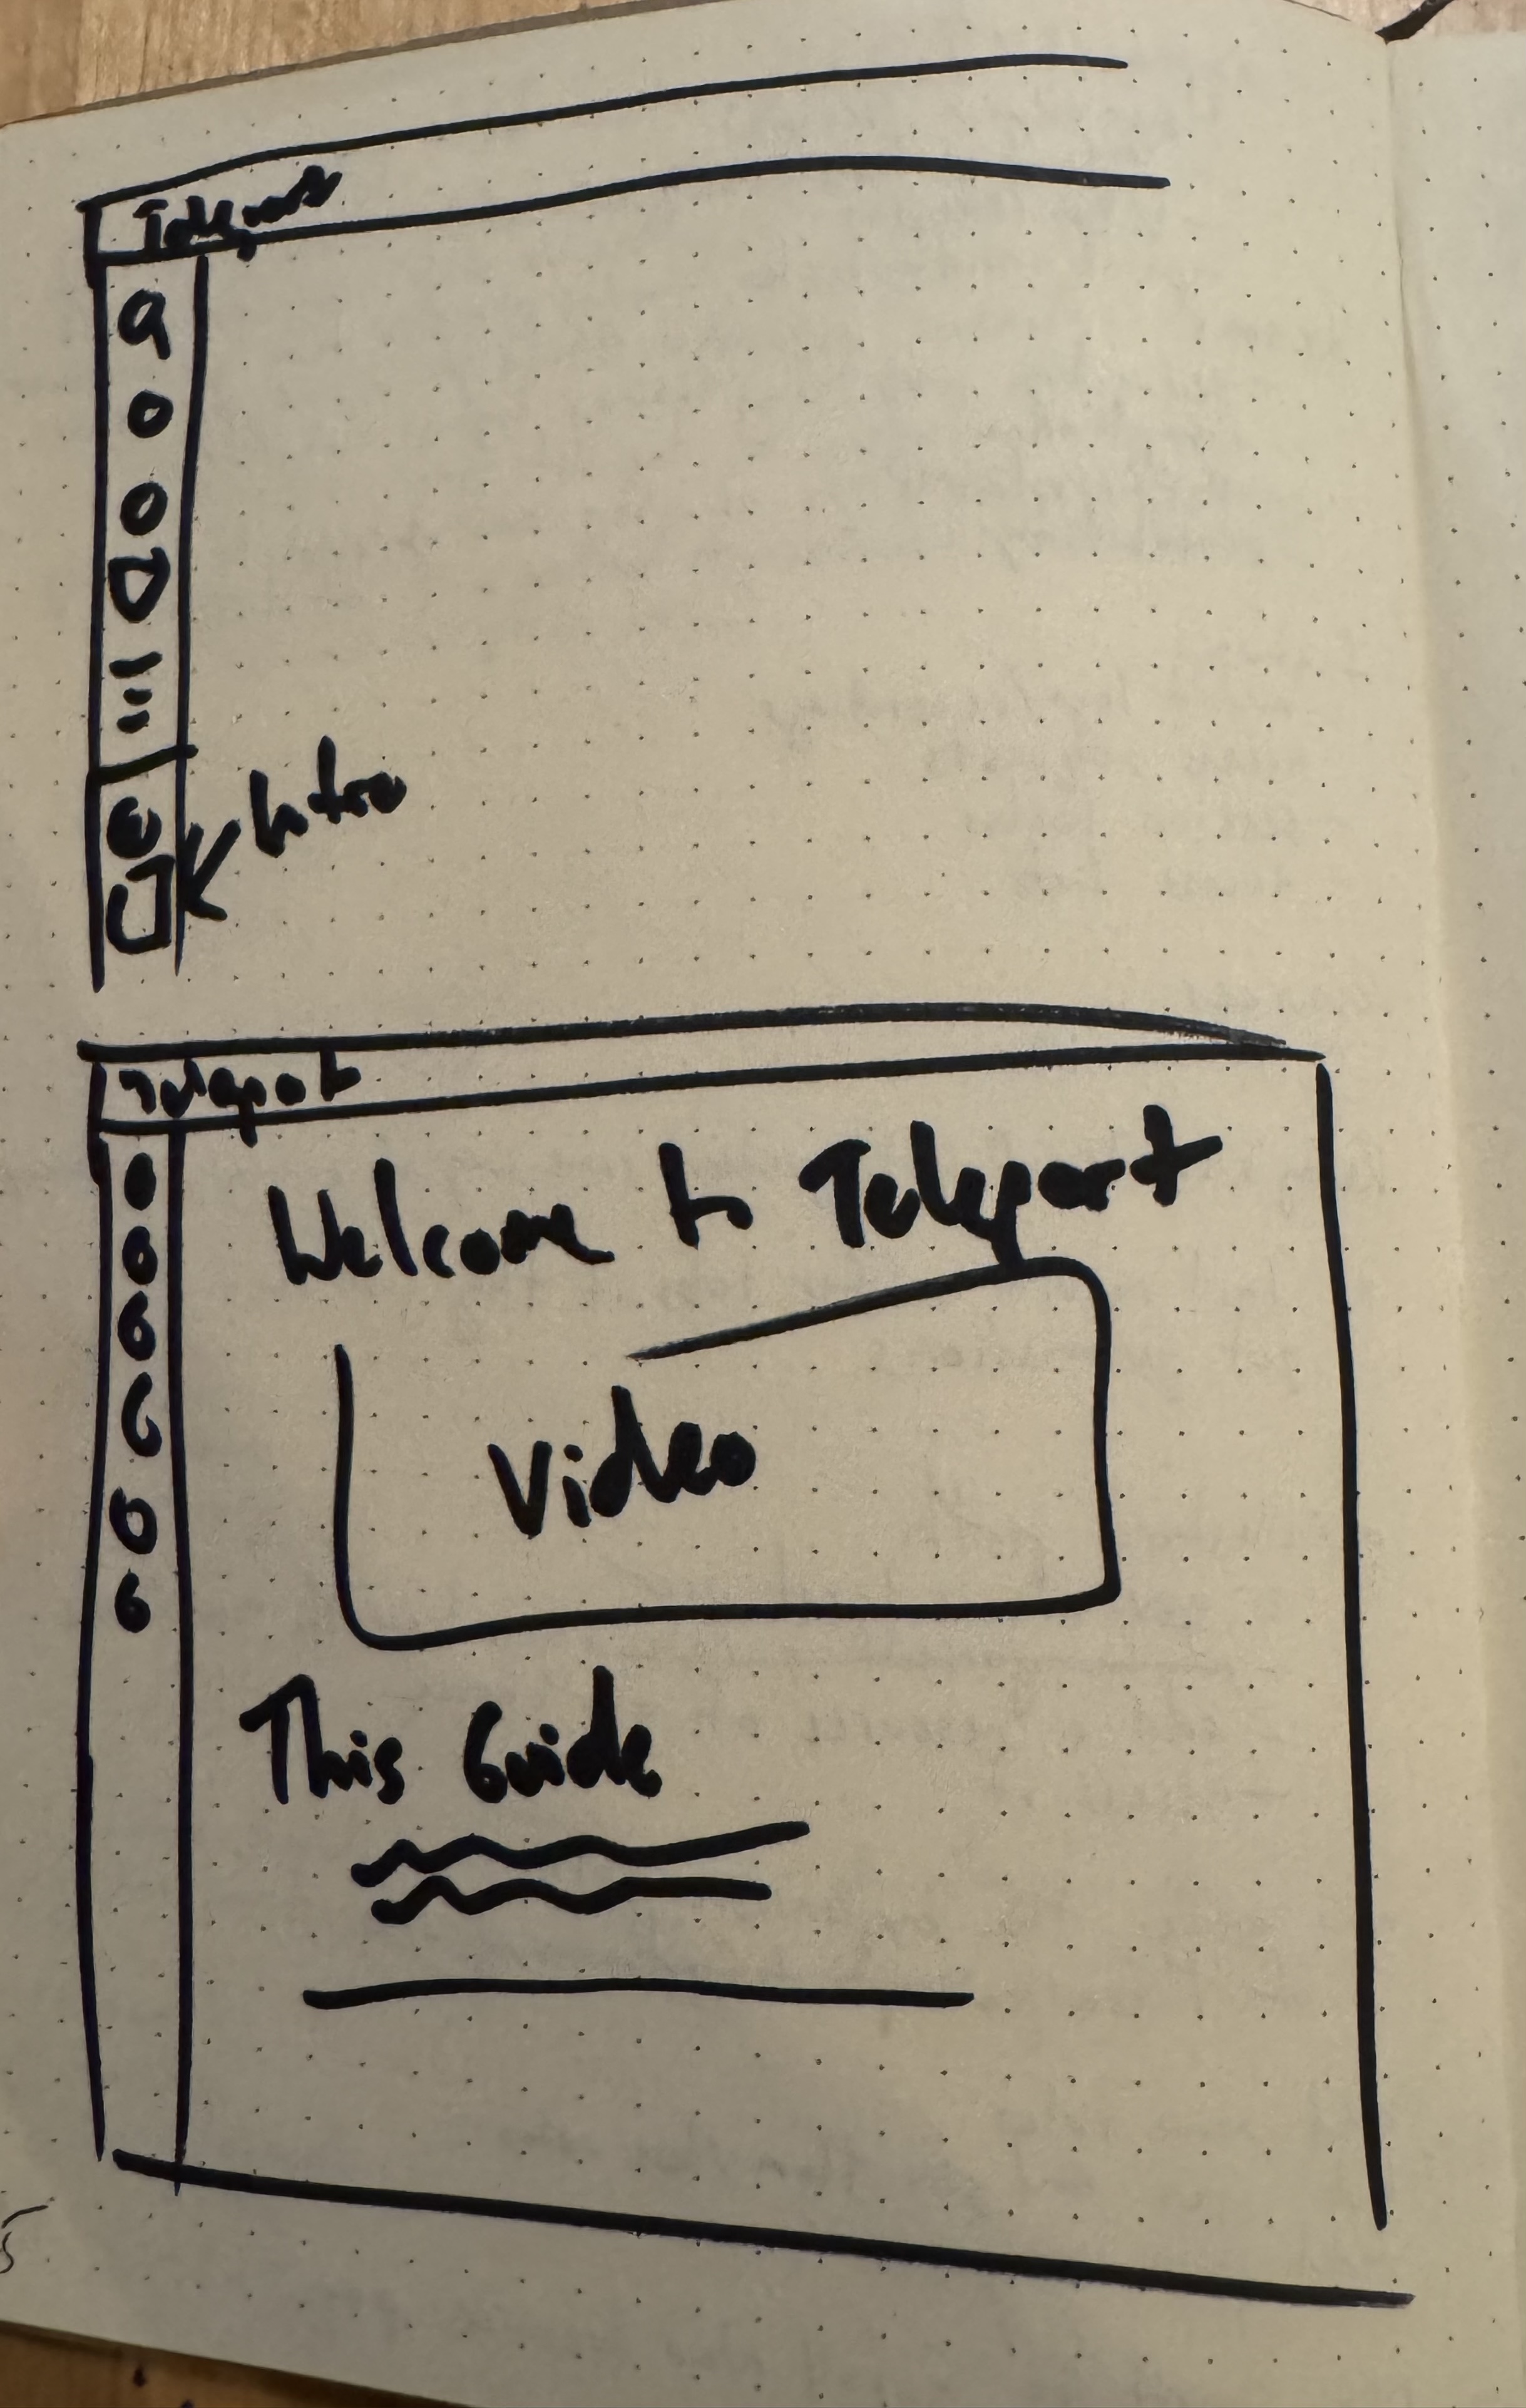 Teleport
Intro
Teleport
Welcome to Teleport
Video
This Guide
5